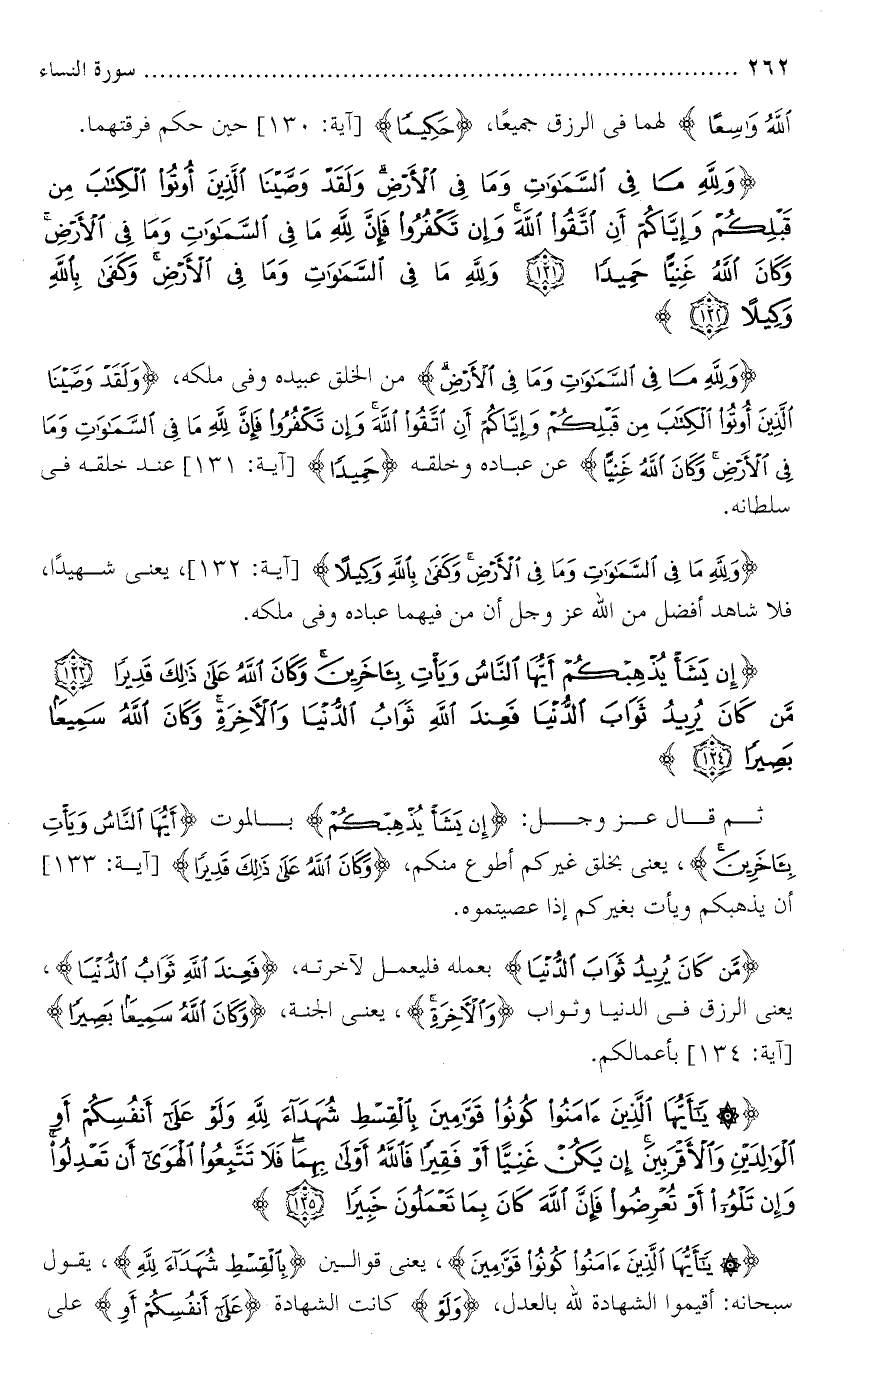 ٢٦٢ ........................................................................ سورة النساء
ٱللَّهُ وَٰسِعًا ﴾ لهما فى الرزق جميعًا، ﴿حَكِيمًا﴾ [آية: ١٣٠] حين حكم فرقتهما.
﴿وَلِلَّهِ مَا فِى ٱلسَّمَٰوَٰتِ وَمَا فِى ٱلْأَرْضِ ۗ وَلَقَدْ وَصَّيْنَا ٱلَّذِينَ أُوتُوا۟ ٱلْكِتَٰبَ مِن
قَبْلِكُمْ وَإِيَّاكُمْ أَنِ ٱتَّقُوا۟ ٱللَّهَ ۚ وَإِن تَكْفُرُوا۟ فَإِنَّ لِلَّهِ مَا فِى ٱلسَّمَٰوَٰتِ وَمَا فِى ٱلْأَرْضِ ۚ
وَكَانَ ٱللَّهُ غَنِيًّا حَمِيدًا ١٣١ وَلِلَّهِ مَا فِى ٱلسَّمَٰوَٰتِ وَمَا فِى ٱلْأَرْضِ ۚ وَكَفَىٰ بِٱللَّهِ
وَكِيلًا ١٣٢ ﴾
﴿وَلِلَّهِ مَا فِى ٱلسَّمَٰوَٰتِ وَمَا فِى ٱلْأَرْضِ ۗ﴾ من الخلق عبيده وفى ملكه، ﴿وَلَقَدْ وَصَّيْنَا
ٱلَّذِينَ أُوتُوا۟ ٱلْكِتَٰبَ مِن قَبْلِكُمْ وَإِيَّاكُمْ أَنِ ٱتَّقُوا۟ ٱللَّهَ ۚ وَإِن تَكْفُرُوا۟ فَإِنَّ لِلَّهِ مَا فِى ٱلسَّمَٰوَٰتِ وَمَا
فِى ٱلْأَرْضِ ۚ وَكَانَ ٱللَّهُ غَنِيًّا﴾ عن عباده وخلقه ﴿حَمِيدًا﴾ [آية: ١٣١] عند خلقه فى
سلطانه.
﴿وَلِلَّهِ مَا فِى ٱلسَّمَٰوَٰتِ وَمَا فِى ٱلْأَرْضِ ۚ وَكَفَىٰ بِٱللَّهِ وَكِيلًا﴾ [آية: ١٣٢]، يعنى شهيدًا،
فلا شاهد أفضل من الله عز وجل أن من فيهما عباده وفى ملكه.
﴿إِن يَشَأْ يُذْهِبْكُمْ أَيُّهَا ٱلنَّاسُ وَيَأْتِ بِـَٔاخَرِينَ ۚ وَكَانَ ٱللَّهُ عَلَىٰ ذَٰلِكَ قَدِيرًا ١٣٣
مَّن كَانَ يُرِيدُ ثَوَابَ ٱلدُّنْيَا فَعِندَ ٱللَّهِ ثَوَابُ ٱلدُّنْيَا وَٱلْءَاخِرَةِ ۚ وَكَانَ ٱللَّهُ سَمِيعًۢا
بَصِيرًا ١٣٤ ﴾
ثم قال عز وجل: ﴿إِن يَشَأْ يُذْهِبْكُمْ﴾ بالموت ﴿أَيُّهَا ٱلنَّاسُ وَيَأْتِ
بِـَٔاخَرِينَ ۚ﴾، يعنى بخلق غيركم أطوع منكم، ﴿وَكَانَ ٱللَّهُ عَلَىٰ ذَٰلِكَ قَدِيرًا﴾ [آية: ١٣٣]
أن يذهبكم ويأت بغيركم إذا عصيتموه.
﴿مَّن كَانَ يُرِيدُ ثَوَابَ ٱلدُّنْيَا﴾ بعمله فليعمل لآخرته، ﴿فَعِندَ ٱللَّهِ ثَوَابُ ٱلدُّنْيَا﴾،
يعنى الرزق فى الدنيا وثواب ﴿وَٱلْءَاخِرَةِ ۚ﴾، يعنى الجنة، ﴿وَكَانَ ٱللَّهُ سَمِيعًۢا بَصِيرًا﴾
[آية: ١٣٤] بأعمالكم.
﴿۞ يَٰٓأَيُّهَا ٱلَّذِينَ ءَامَنُوا۟ كُونُوا۟ قَوَّٰمِينَ بِٱلْقِسْطِ شُهَدَآءَ لِلَّهِ وَلَوْ عَلَىٰٓ أَنفُسِكُمْ أَوِ
ٱلْوَٰلِدَيْنِ وَٱلْأَقْرَبِينَ ۚ إِن يَكُنْ غَنِيًّا أَوْ فَقِيرًا فَٱللَّهُ أَوْلَىٰ بِهِمَا ۖ فَلَا تَتَّبِعُوا۟ ٱلْهَوَىٰٓ أَن تَعْدِلُوا۟ ۚ
وَإِن تَلْوُۥٓا۟ أَوْ تُعْرِضُوا۟ فَإِنَّ ٱللَّهَ كَانَ بِمَا تَعْمَلُونَ خَبِيرًا ١٣٥ ﴾
﴿۞ يَٰٓأَيُّهَا ٱلَّذِينَ ءَامَنُوا۟ كُونُوا۟ قَوَّٰمِينَ﴾، يعنى قوالين ﴿بِٱلْقِسْطِ شُهَدَآءَ لِلَّهِ﴾، يقول
سبحانه: أقيموا الشهادة لله بالعدل، ﴿وَلَوْ﴾ كانت الشهادة ﴿عَلَىٰٓ أَنفُسِكُمْ أَوِ﴾ على